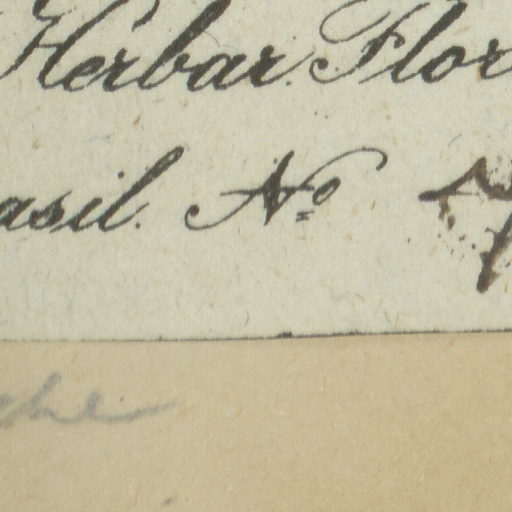 Herbar. Flor
asil. Nº 7
che